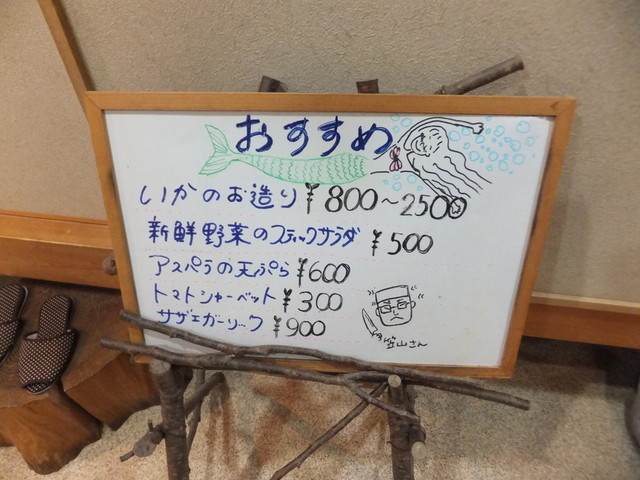 おすすめ
いかのお造り ¥800~2500
新鮮野菜のスティックサラダ ¥500
アスパラの天ぷら ¥600
トマトシャーベット ¥300
サザエガーリック ¥900
笠山さん